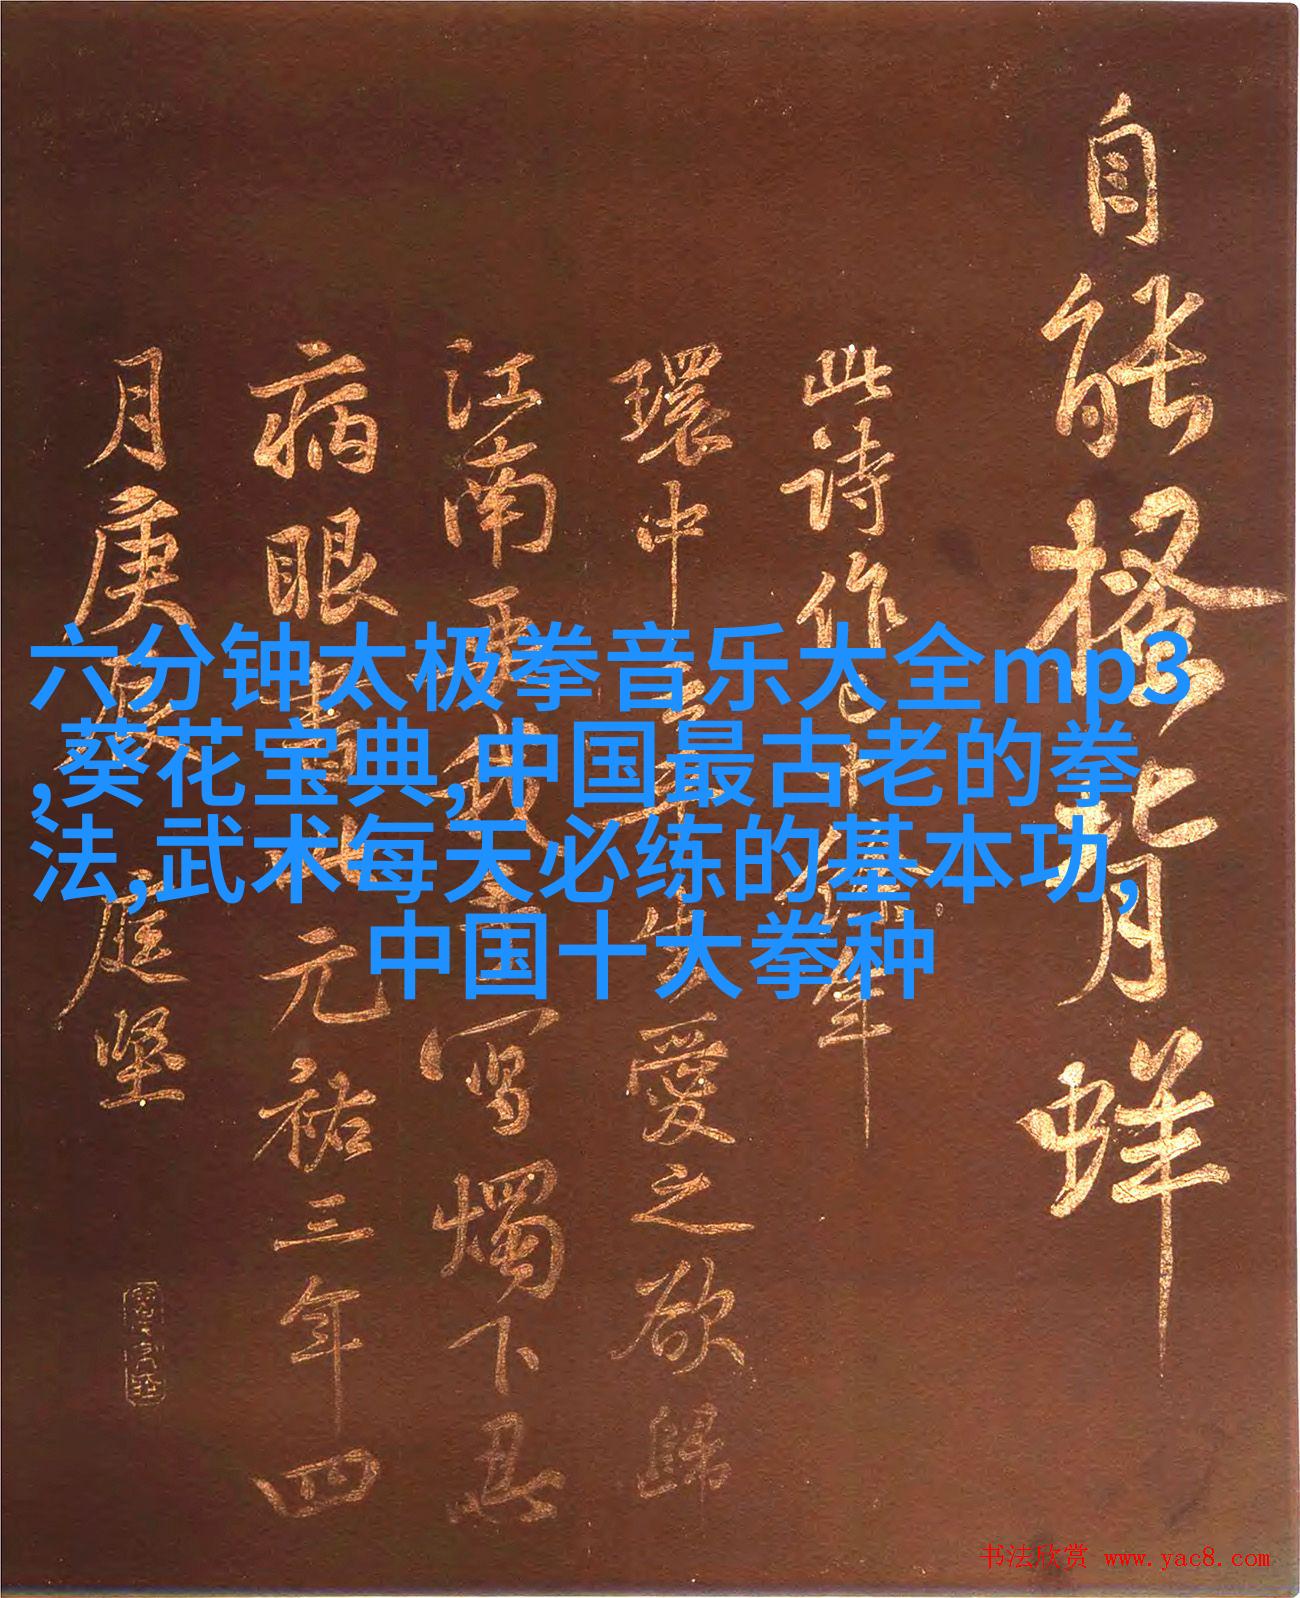 自能搔背蛘
此詩作已十餘年
環中愛之欲歸
江南要我重寫燭下忍
病眼書此元祐三年四
月庚辰庭堅
六分钟太极拳音乐大全mp3
,葵花宝典,中国最古老的拳
法,武术每天必练的基本功,
中国十大拳种
书法欣赏 www.yac8.com